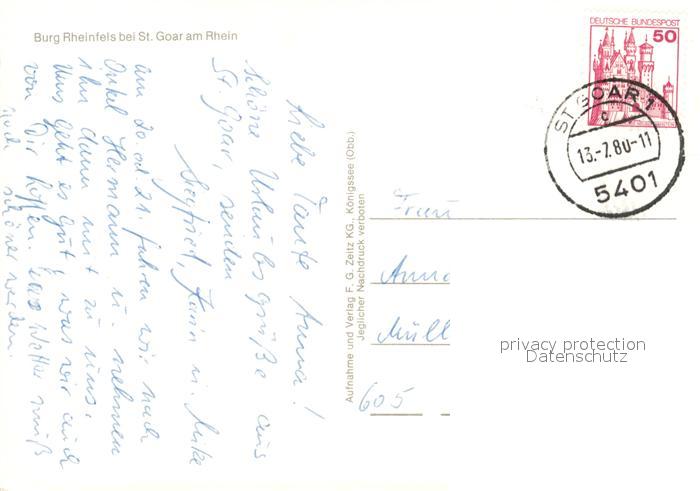 Burg Rheinfels bei St. Goar am Rhein
Liebe Tante Anna!
Schöne Urlaubsgrüße aus
St. Goar, senden
Siegfried, Karin u. Mike
am 20. od 21. fahren wir nach
Onkel Hermann u. nehmen
ihn dann mit zu uns.
Uns geht es gut, was wir auch
von Dir hoffen. Das Wetter muß
noch schöner werden.
Aufnahme und Verlag F. G. Zeitz KG., Königssee (Obb.)
Jeglicher Nachdruck verboten
DEUTSCHE BUNDESPOST
50
ST GOAR 1
c
13.-7.80-11
5401
Frau
Anna
Müll
605
privacy protection
Datenschutz